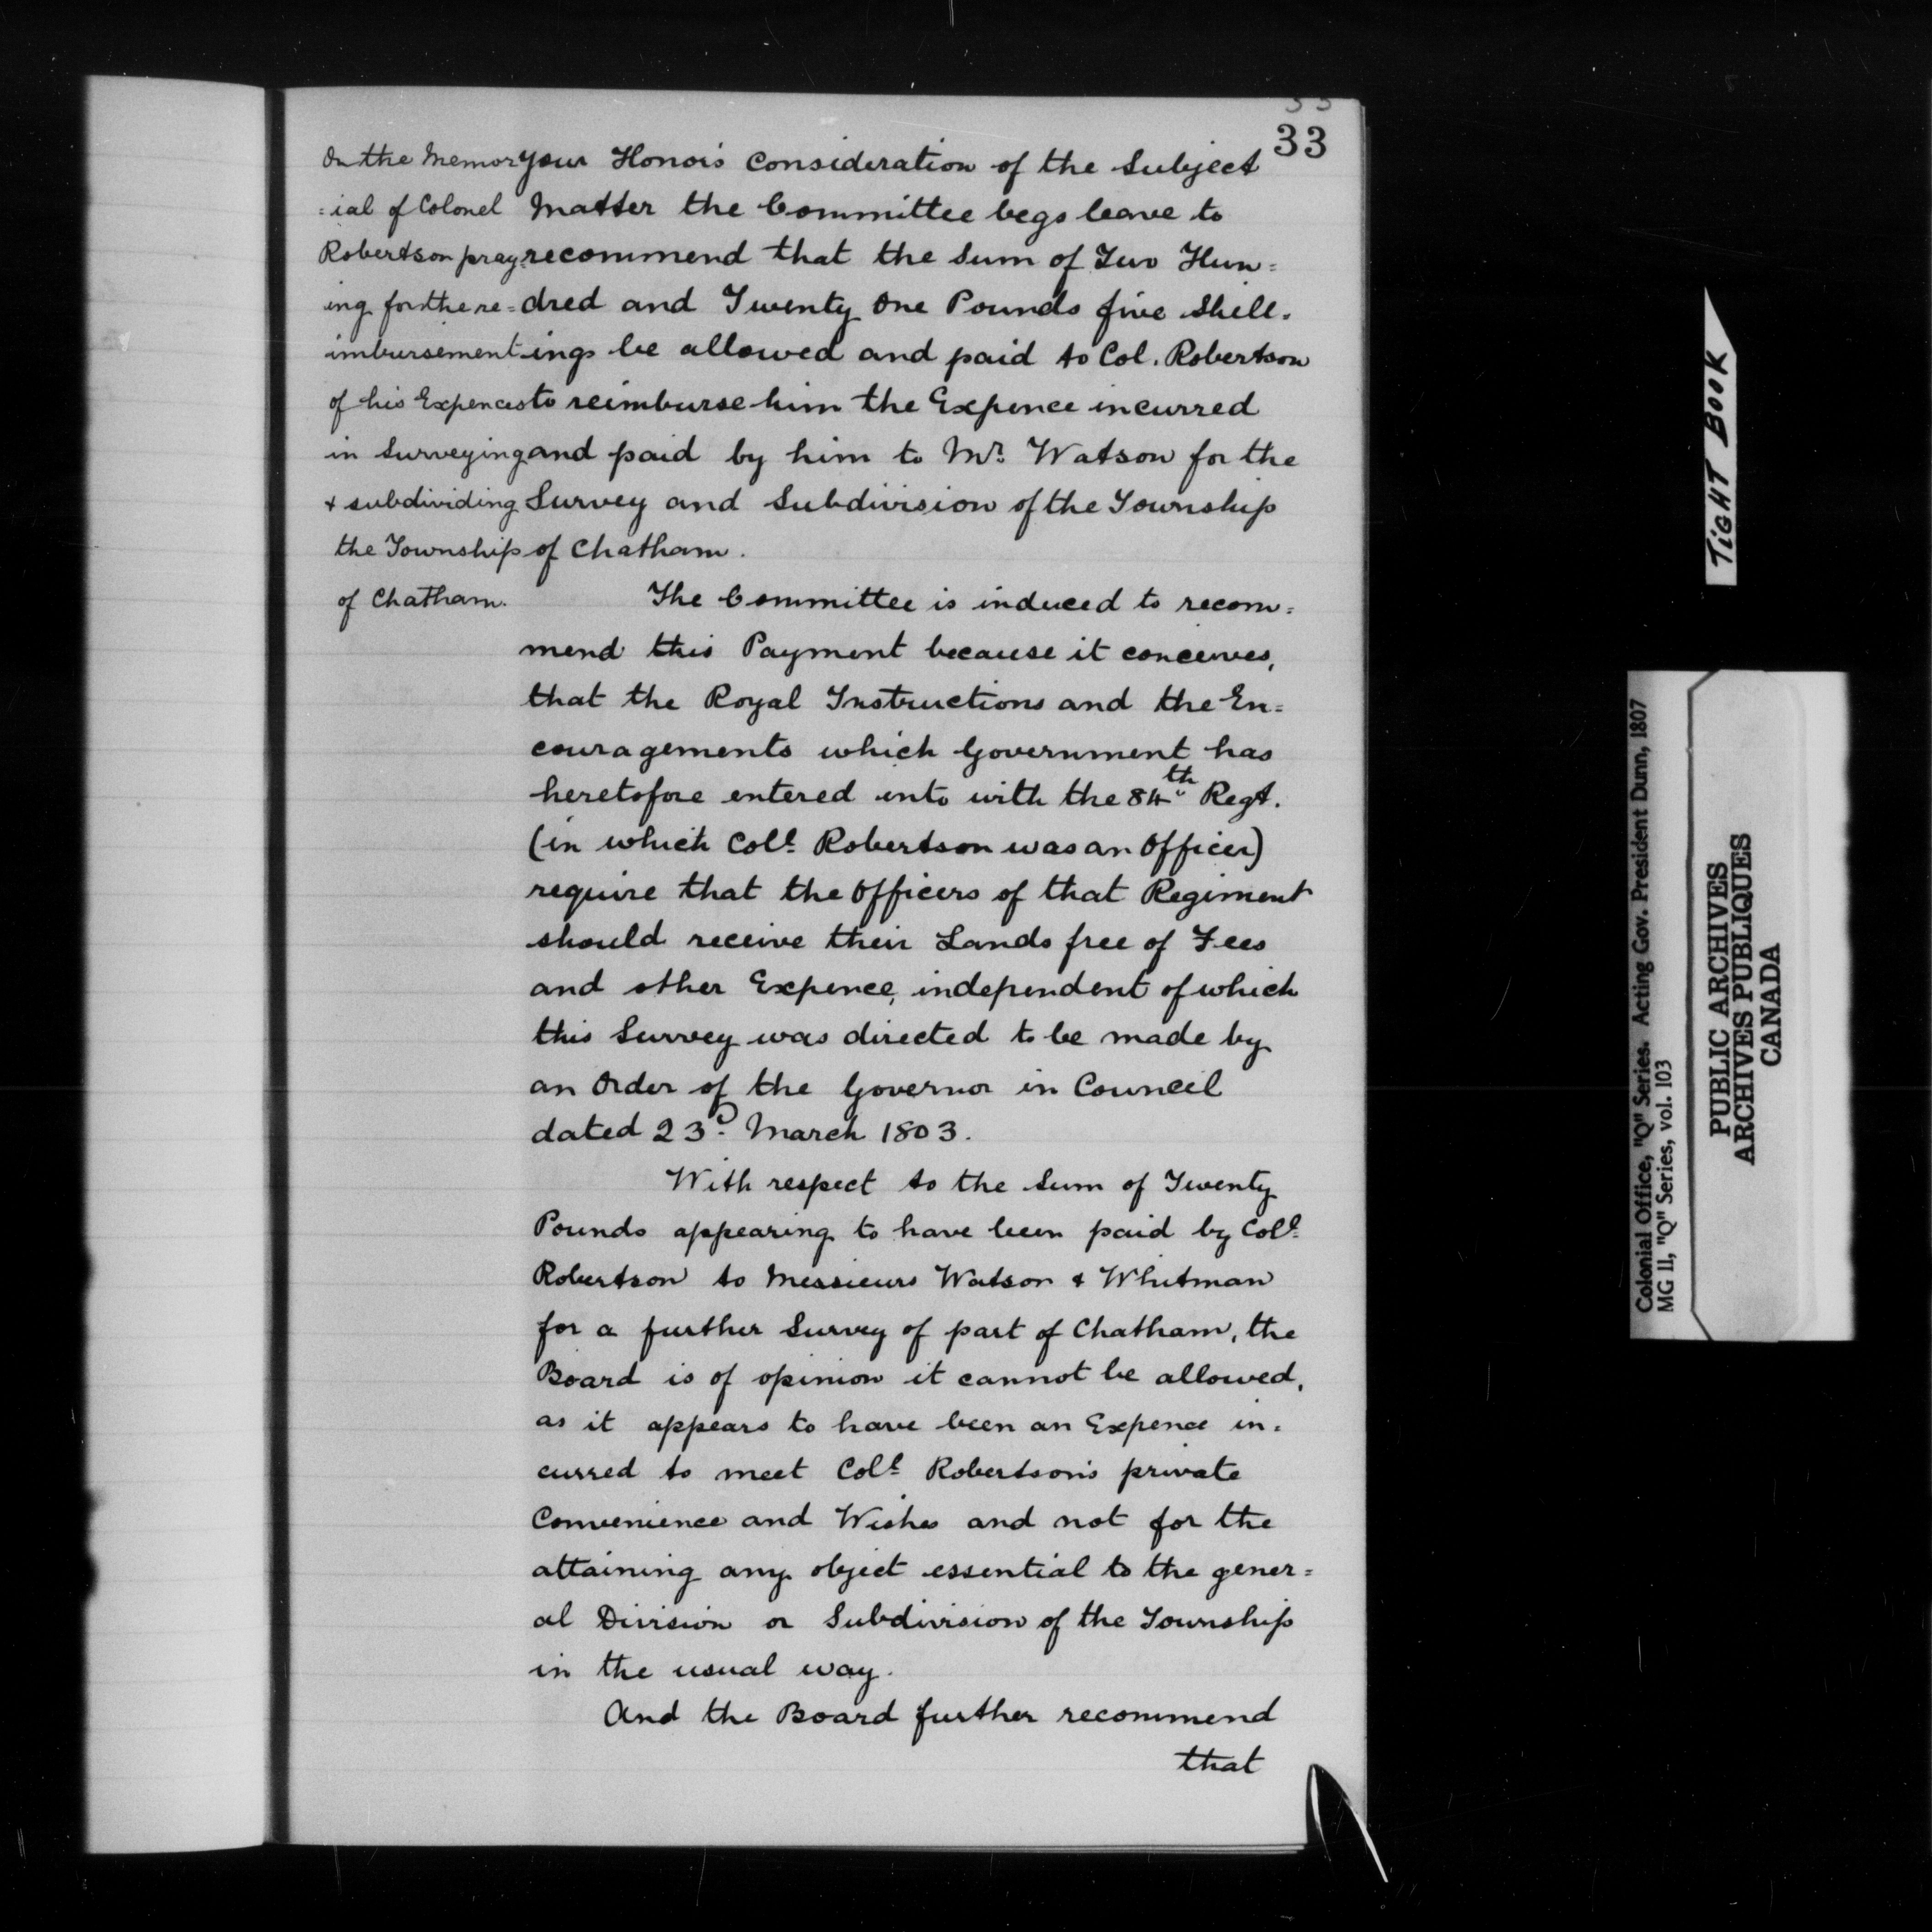 33
On the Memor
=ial of Colonel
Robertson pray=
ing for the re=
imbursement
of his Expences
in Surveying
& subdividing
the Township
of Chatham.
Your Honor's Consideration of the Subject
Matter the Committee begs leave to
recommend that the Sum of Two Hun=
dred and Twenty One Pounds five Shill=
ings be allowed and paid to Col. Robertson
to reimburse him the Expence incurred
and paid by him to Mr. Watson for the
Survey and Subdivision of the Township
of Chatham.
The Committee is induced to recom=
mend this Payment because it conceives,
that the Royal Instructions and the En=
couragements which Government has
heretofore entered into with the 84th Regt.
(in which Coll. Robertson was an Officer)
require that the Officers of that Regiment
should receive their Lands free of Fees
and other Expence, independent of which
this Survey was directed to be made by
an Order of the Governor in Council
dated 23d. March 1803.
With respect to the Sum of Twenty
Pounds appearing to have been paid by Coll.
Robertson to Messieurs Watson & Whitman
for a further Survey of part of Chatham, the
Board is of opinion it cannot be allowed,
as it appears to have been an Expence in=
curred to meet Coll. Robertson's private
Convenience and Wishes and not for the
attaining any object essential to the gener=
al Division or Subdivision of the Township
in the usual way.
And the Board further recommend
that
TIGHT BOOK
Colonial Office, "Q" Series. Acting Gov. President Dunn, 1807
MG 11, "Q" Series, vol. 103
PUBLIC ARCHIVES
ARCHIVES PUBLIQUES
CANADA